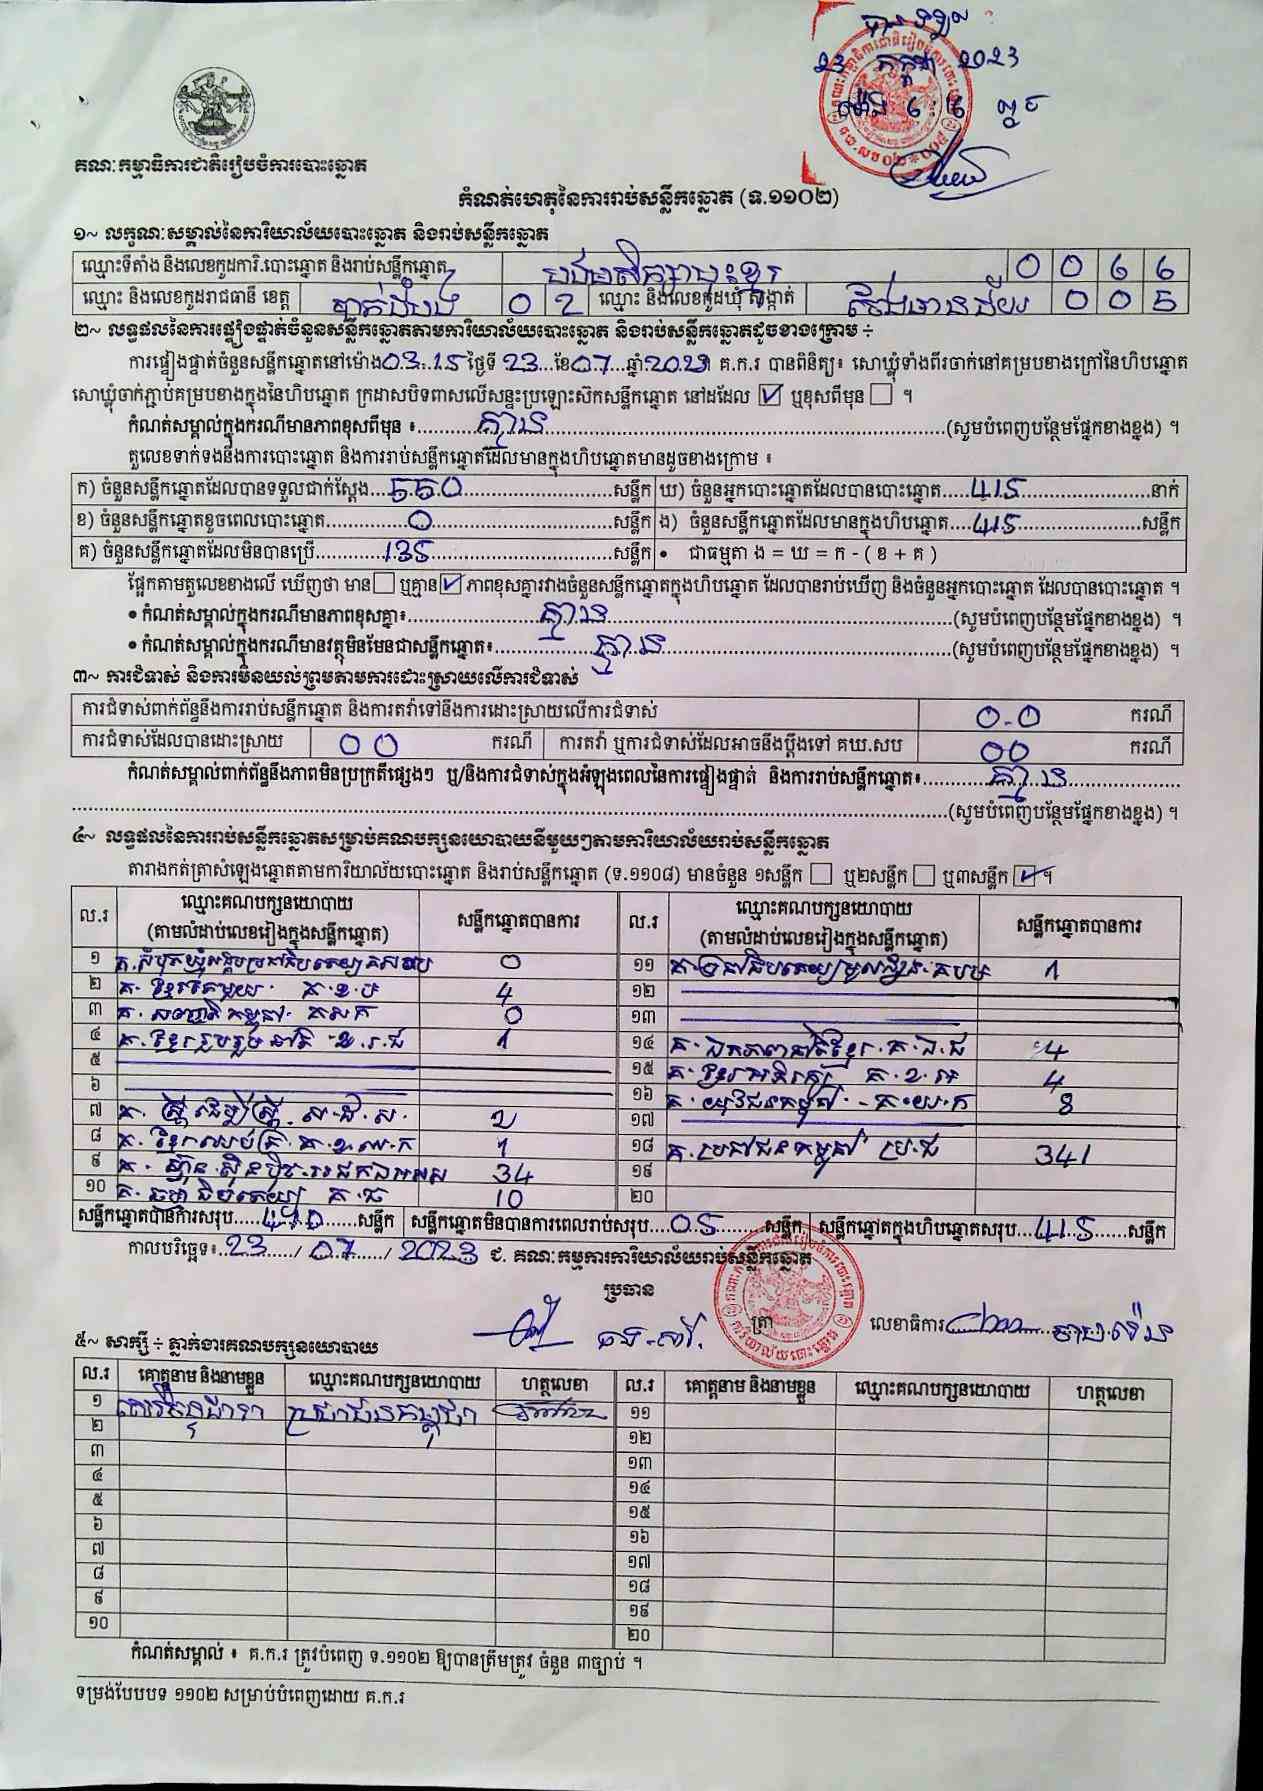 បានទទួល
23 កក្កដា 2023
ម៉ោង 6:
គណៈកម្មាធិការជាតិរៀបចំការបោះឆ្នោត
កំណត់ហេតុនៃការរាប់សន្លឹកឆ្នោត (ទ.១១០២)
១~ លក្ខណៈសម្គាល់នៃការិយាល័យបោះឆ្នោត និងរាប់សន្លឹកឆ្នោត
ឈ្មោះទីតាំង និងលេខកូដការិ.បោះឆ្នោត និងរាប់សន្លឹកឆ្នោត 0 0 6 6
ឈ្មោះ និងលេខកូដរាជធានី ខេត្ត បាត់ដំបង 0 2 ឈ្មោះ និងលេខកូដឃុំ សង្កាត់ 0 0 5
២~ លទ្ធផលនៃការផ្ទៀងផ្ទាត់ចំនួនសន្លឹកឆ្នោតតាមការិយាល័យបោះឆ្នោត និងរាប់សន្លឹកឆ្នោតដូចខាងក្រោម ÷
ការផ្ទៀងផ្ទាត់ចំនួនសន្លឹកឆ្នោតនៅម៉ោង 03:15 ថ្ងៃទី 23 ខែ 07 ឆ្នាំ 2023 គ.ក.រ បានពិនិត្យ៖ សោឃ្លុំទាំងពីរចាក់នៅគម្របខាងក្រៅនៃហិបឆ្នោត
សោឃ្លុំចាក់ភ្ជាប់គម្របខាងក្នុងនៃហិបឆ្នោត ក្រដាសបិទពាសលើសន្ទះប្រឡោះស៊កសន្លឹកឆ្នោត នៅដដែល ☑ ឬខុសពីមុន ☐ ។
កំណត់សម្គាល់ក្នុងករណីមានភាពខុសពីមុន ៖ គ្មាន (សូមបំពេញបន្ថែមផ្នែកខាងខ្នង) ។
តួលេខទាក់ទងនឹងការបោះឆ្នោត និងការរាប់សន្លឹកឆ្នោតដែលមានក្នុងហិបឆ្នោតមានដូចខាងក្រោម ៖
ក) ចំនួនសន្លឹកឆ្នោតដែលបានទទួលជាក់ស្ដែង 550 សន្លឹក ឃ) ចំនួនអ្នកបោះឆ្នោតដែលបានបោះឆ្នោត 415 នាក់
ខ) ចំនួនសន្លឹកឆ្នោតខូចពេលបោះឆ្នោត 0 សន្លឹក ង) ចំនួនសន្លឹកឆ្នោតដែលមានក្នុងហិបឆ្នោត 415 សន្លឹក
គ) ចំនួនសន្លឹកឆ្នោតដែលមិនបានប្រើ 135 សន្លឹក • ជាធម្មតា ង = ឃ = ក - ( ខ + គ )
ផ្អែកតាមតួលេខខាងលើ ឃើញថា មាន ☐ ឬគ្មាន ☑ ភាពខុសគ្នារវាងចំនួនសន្លឹកឆ្នោតក្នុងហិបឆ្នោត ដែលបានរាប់ឃើញ និងចំនួនអ្នកបោះឆ្នោត ដែលបានបោះឆ្នោត ។
• កំណត់សម្គាល់ក្នុងករណីមានភាពខុសគ្នា៖ គ្មាន (សូមបំពេញបន្ថែមផ្នែកខាងខ្នង) ។
• កំណត់សម្គាល់ក្នុងករណីមានវត្ថុមិនមែនជាសន្លឹកឆ្នោត៖ គ្មាន (សូមបំពេញបន្ថែមផ្នែកខាងខ្នង) ។
៣~ ការជំទាស់ និងការមិនយល់ព្រមតាមការដោះស្រាយលើការជំទាស់
ការជំទាស់ពាក់ព័ន្ធនឹងការរាប់សន្លឹកឆ្នោត និងការតវ៉ាទៅនឹងការដោះស្រាយលើការជំទាស់ 0.0 ករណី
ការជំទាស់ដែលបានដោះស្រាយ 00 ករណី ការតវ៉ា ឬការជំទាស់ដែលអាចនឹងប្ដឹងទៅ គឃ.សប 00 ករណី
កំណត់សម្គាល់ពាក់ព័ន្ធនឹងភាពមិនប្រក្រតីផ្សេងៗ ឬ/និងការជំទាស់ក្នុងអំឡុងពេលនៃការផ្ទៀងផ្ទាត់ និងការរាប់សន្លឹកឆ្នោត៖ គ្មាន
(សូមបំពេញបន្ថែមផ្នែកខាងខ្នង) ។
៤~ លទ្ធផលនៃការរាប់សន្លឹកឆ្នោតសម្រាប់គណបក្សនយោបាយនីមួយៗតាមការិយាល័យរាប់សន្លឹកឆ្នោត
តារាងកត់ត្រាសំឡេងឆ្នោតតាមការិយាល័យបោះឆ្នោត និងរាប់សន្លឹកឆ្នោត (ទ.១១០៨) មានចំនួន ១សន្លឹក ☐ ឬ២សន្លឹក ☐ ឬ៣សន្លឹក ☑ ។
ល.រ ឈ្មោះគណបក្សនយោបាយ (តាមលំដាប់លេខរៀងក្នុងសន្លឹកឆ្នោត) សន្លឹកឆ្នោតបានការ ល.រ ឈ្មោះគណបក្សនយោបាយ (តាមលំដាប់លេខរៀងក្នុងសន្លឹកឆ្នោត) សន្លឹកឆ្នោតបានការ
១ គ.សំបុកឃ្មុំសង្គមប្រជាធិបតេយ្យ 0 ១១ គ.ប្រជាធិបតេយ្យមូលដ្ឋាន 1
២ គ. ខ្មែរតែមួយ គ.ខ.ម 4 ១២
៣ គ. សញ្ជាតិកម្ពុជា គសក 0 ១៣
៤ គ. ខ្មែររួបរួមជាតិ ខ.រ.ជ 1 ១៤ គ. ឯកភាពជាតិខ្មែរ គ.ឯ.ជ 4
៥ ១៥ គ. ខ្មែរអភិរក្ស គ.ខ.អ 4
៦ ១៦ គ. យុវជនកម្ពុជា គ.យ.ក 8
៧ គ. ស្ត្រីដើម្បីស្ត្រី ស.ដ.ស 2 ១៧
៨ 1 ១៨ គ. ប្រជាជនកម្ពុជា ប្រ.ជ 341
៩ គ. ហ៊្វុនស៊ិនប៉ិច 34 ១៩
១០ គ. ធម្មាធិបតេយ្យ គ.ធ 10 ២០
សន្លឹកឆ្នោតបានការសរុប 410 សន្លឹក សន្លឹកឆ្នោតមិនបានការពេលរាប់សរុប 05 សន្លឹក សន្លឹកឆ្នោតក្នុងហិបឆ្នោតសរុប 415 សន្លឹក
កាលបរិច្ឆេទ៖ 23 / 07 / 2023 ជ. គណៈកម្មការការិយាល័យរាប់សន្លឹកឆ្នោត
ប្រធាន
ត្រា លេខាធិការ
៥~ សាក្សី ÷ ភ្នាក់ងារគណបក្សនយោបាយ
ល.រ គោត្តនាម និងនាមខ្លួន ឈ្មោះគណបក្សនយោបាយ ហត្ថលេខា ល.រ គោត្តនាម និងនាមខ្លួន ឈ្មោះគណបក្សនយោបាយ ហត្ថលេខា
១ ប្រជាជនកម្ពុជា ១១
២ ១២
៣ ១៣
៤ ១៤
៥ ១៥
៦ ១៦
៧ ១៧
៨ ១៨
៩ ១៩
១០ ២០
កំណត់សម្គាល់ ៖ គ.ក.រ ត្រូវបំពេញ ទ.១១០២ ឱ្យបានត្រឹមត្រូវ ចំនួន ៣ច្បាប់ ។
ទម្រង់បែបបទ ១១០២ សម្រាប់បំពេញដោយ គ.ក.រ